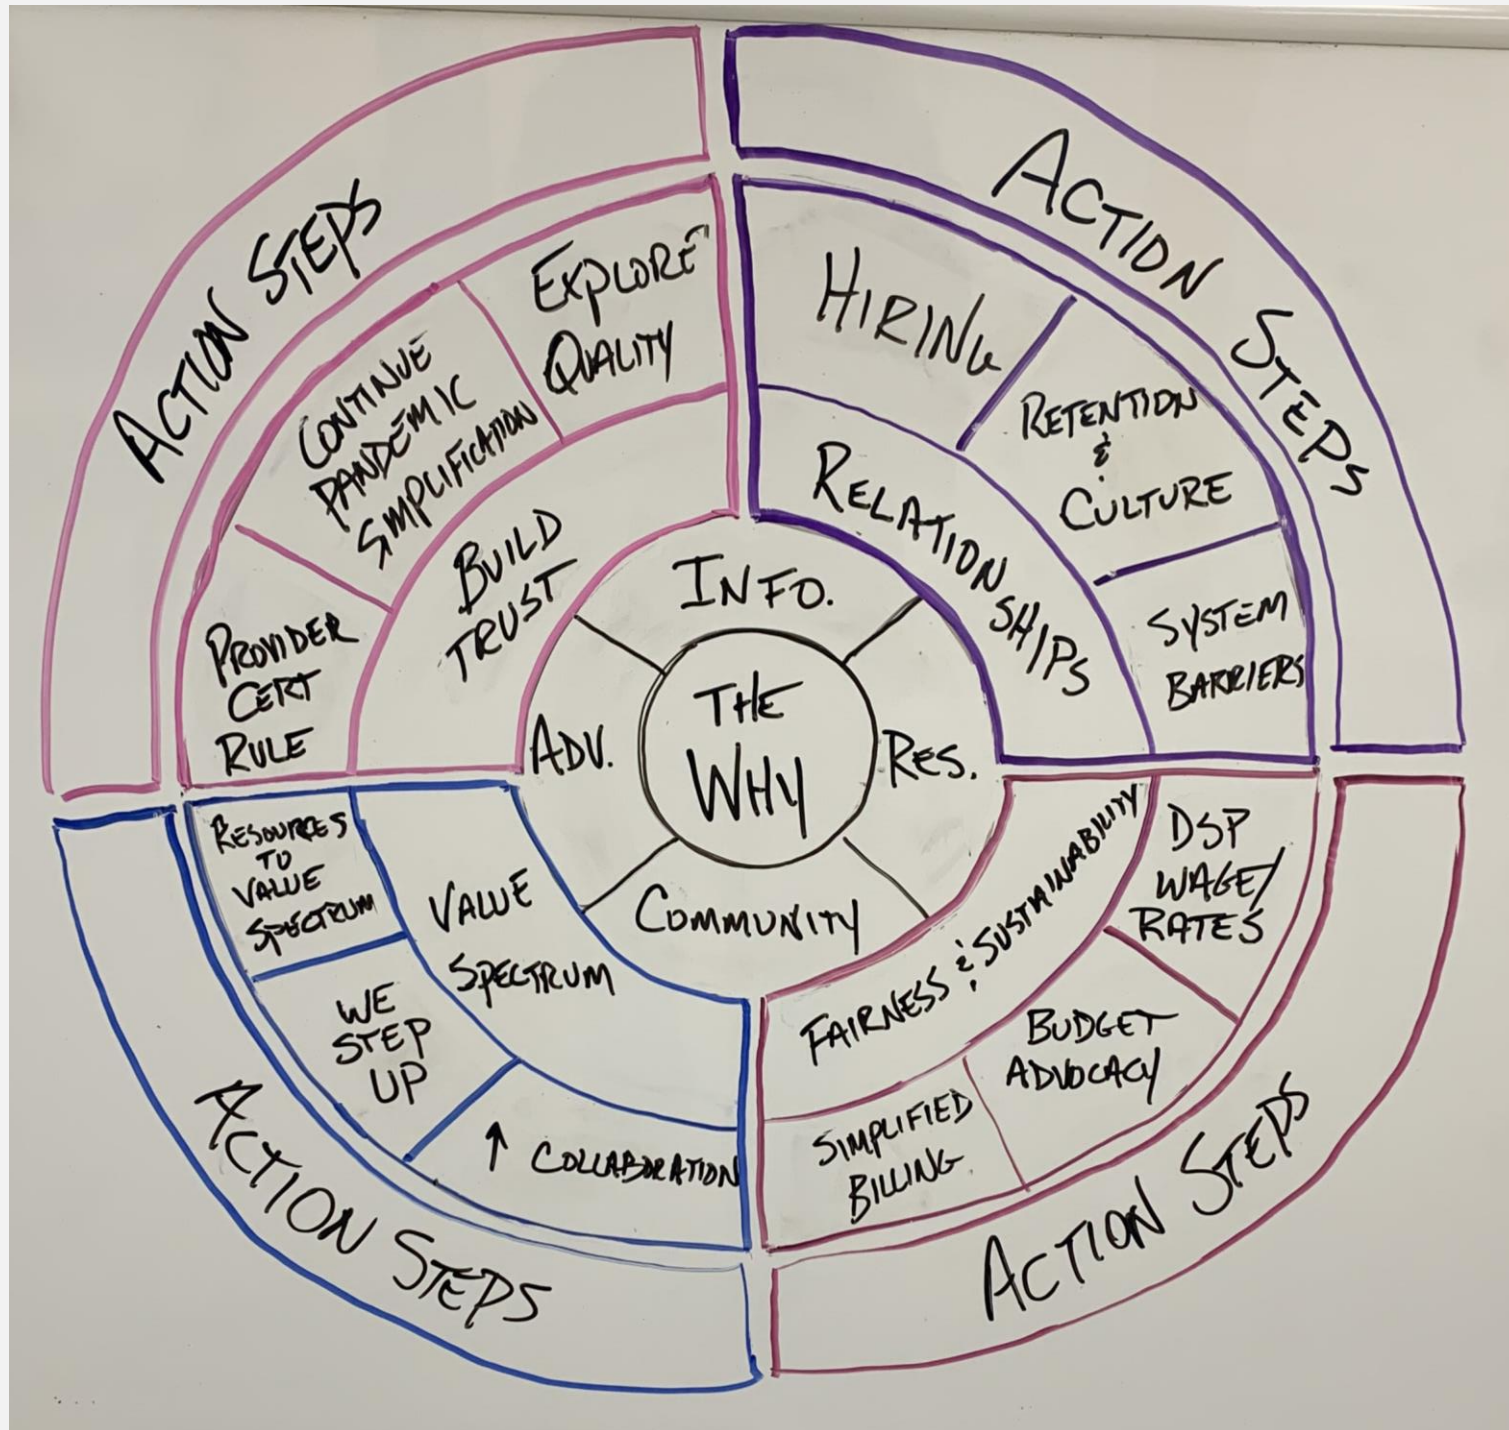 ACTION STEPS
ACTION STEPS
EXPLORE
QUALITY
CONTINUE
PANDEMIC
SIMPLIFICATION
PROVIDER
CERT
RULE
BUILD
TRUST
HIRING
RETENTION
&
CULTURE
SYSTEM
BARRIERS
RELATIONSHIPS
INFO.
ADV.
THE
WHY
RES.
COMMUNITY
RESOURCES
TO
VALUE
SPECTRUM
WE
STEP
UP
↑ COLLABORATION
VALUE
SPECTRUM
FAIRNESS & SUSTAINABILITY
DSP
WAGE/
RATES
BUDGET
ADVOCACY
SIMPLIFIED
BILLING
ACTION STEPS
ACTION STEPS